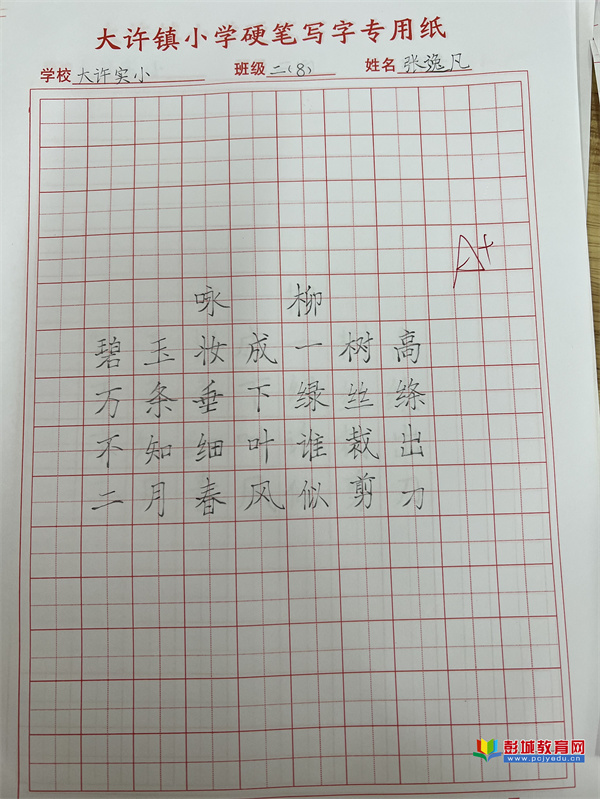 大许镇小学硬笔写字专用纸
学校 大许实小 班级 二(8) 姓名 张逸凡
A+
咏柳
碧玉妆成一树高
万条垂下绿丝绦
不知细叶谁裁出
二月春风似剪刀
彭城教育网
www.pcjyedu.cn